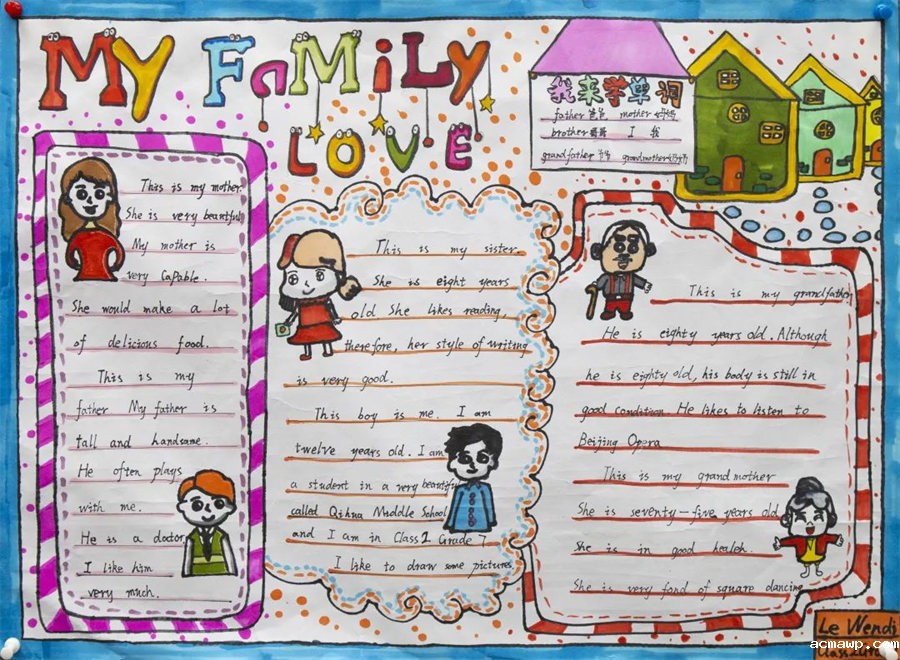 My Family
Love
我来学单词
father 爸爸 mother 妈妈
brother 哥哥 I 我
grandfather grandmother
This is my mother.
She is very beautiful
My mother is
very Capable.
She would make a lot
of delicious food.
This is my
father My father is
tall and handsome.
He often plays
with me.
He is a doctor.
I like him
very much.
This is my sister
She is eight years
old She likes reading,
therefore, her style of writing
is very good.
This boy is me. I am
twelve years old. I am
a student in a very beautiful
called Qihua Middle School
and I am in Class 2 Grade 7
I like to draw some pictures
This is my grandfather
He is eighty years old. Although
he is eighty old, his body is still in
good condition He likes to listen to
Beijing Opera
This is my grandmother
She is seventy-five years old
She is in good health.
She is very fond of square dancing
Le Wendi
acmawp.com